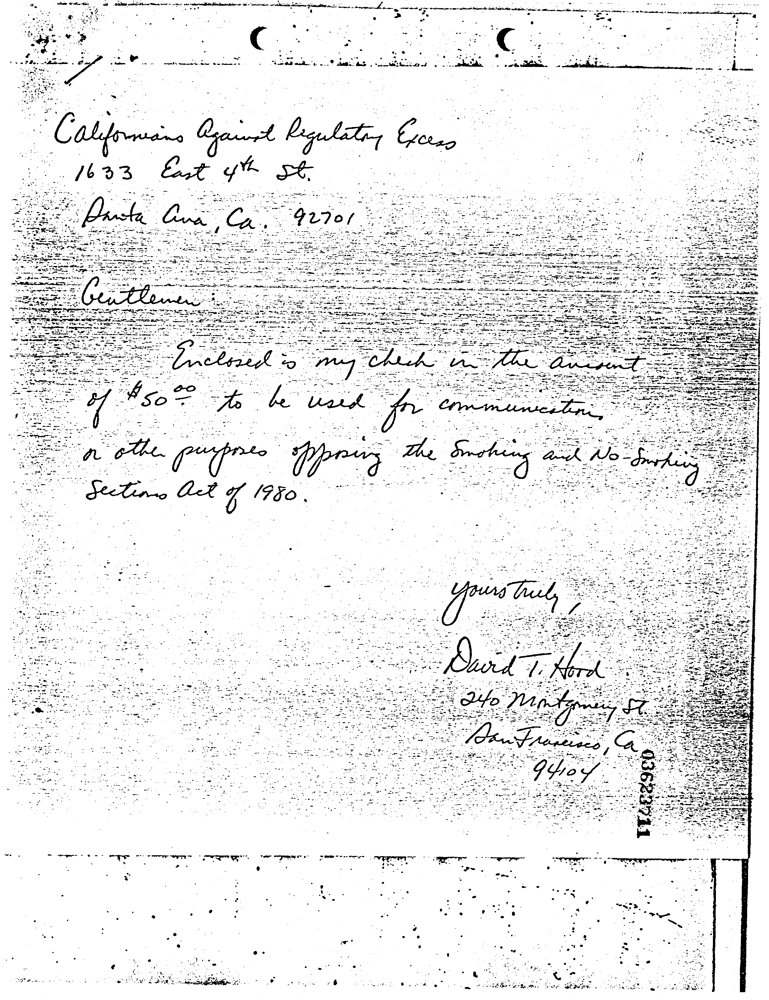 Californians Against Regulatory Excess
1633 East 4th St.
Santa Ana, Ca. 92701
Gentlemen:
Enclosed is my check in the amount
of $50.00 to be used for communications
or other purposes opposing the Smoking and No-Smoking
Sections Act of 1980.
Yours truly,
David T. Hood
240 Montgomery St.
San Francisco, Ca
94104
03623711